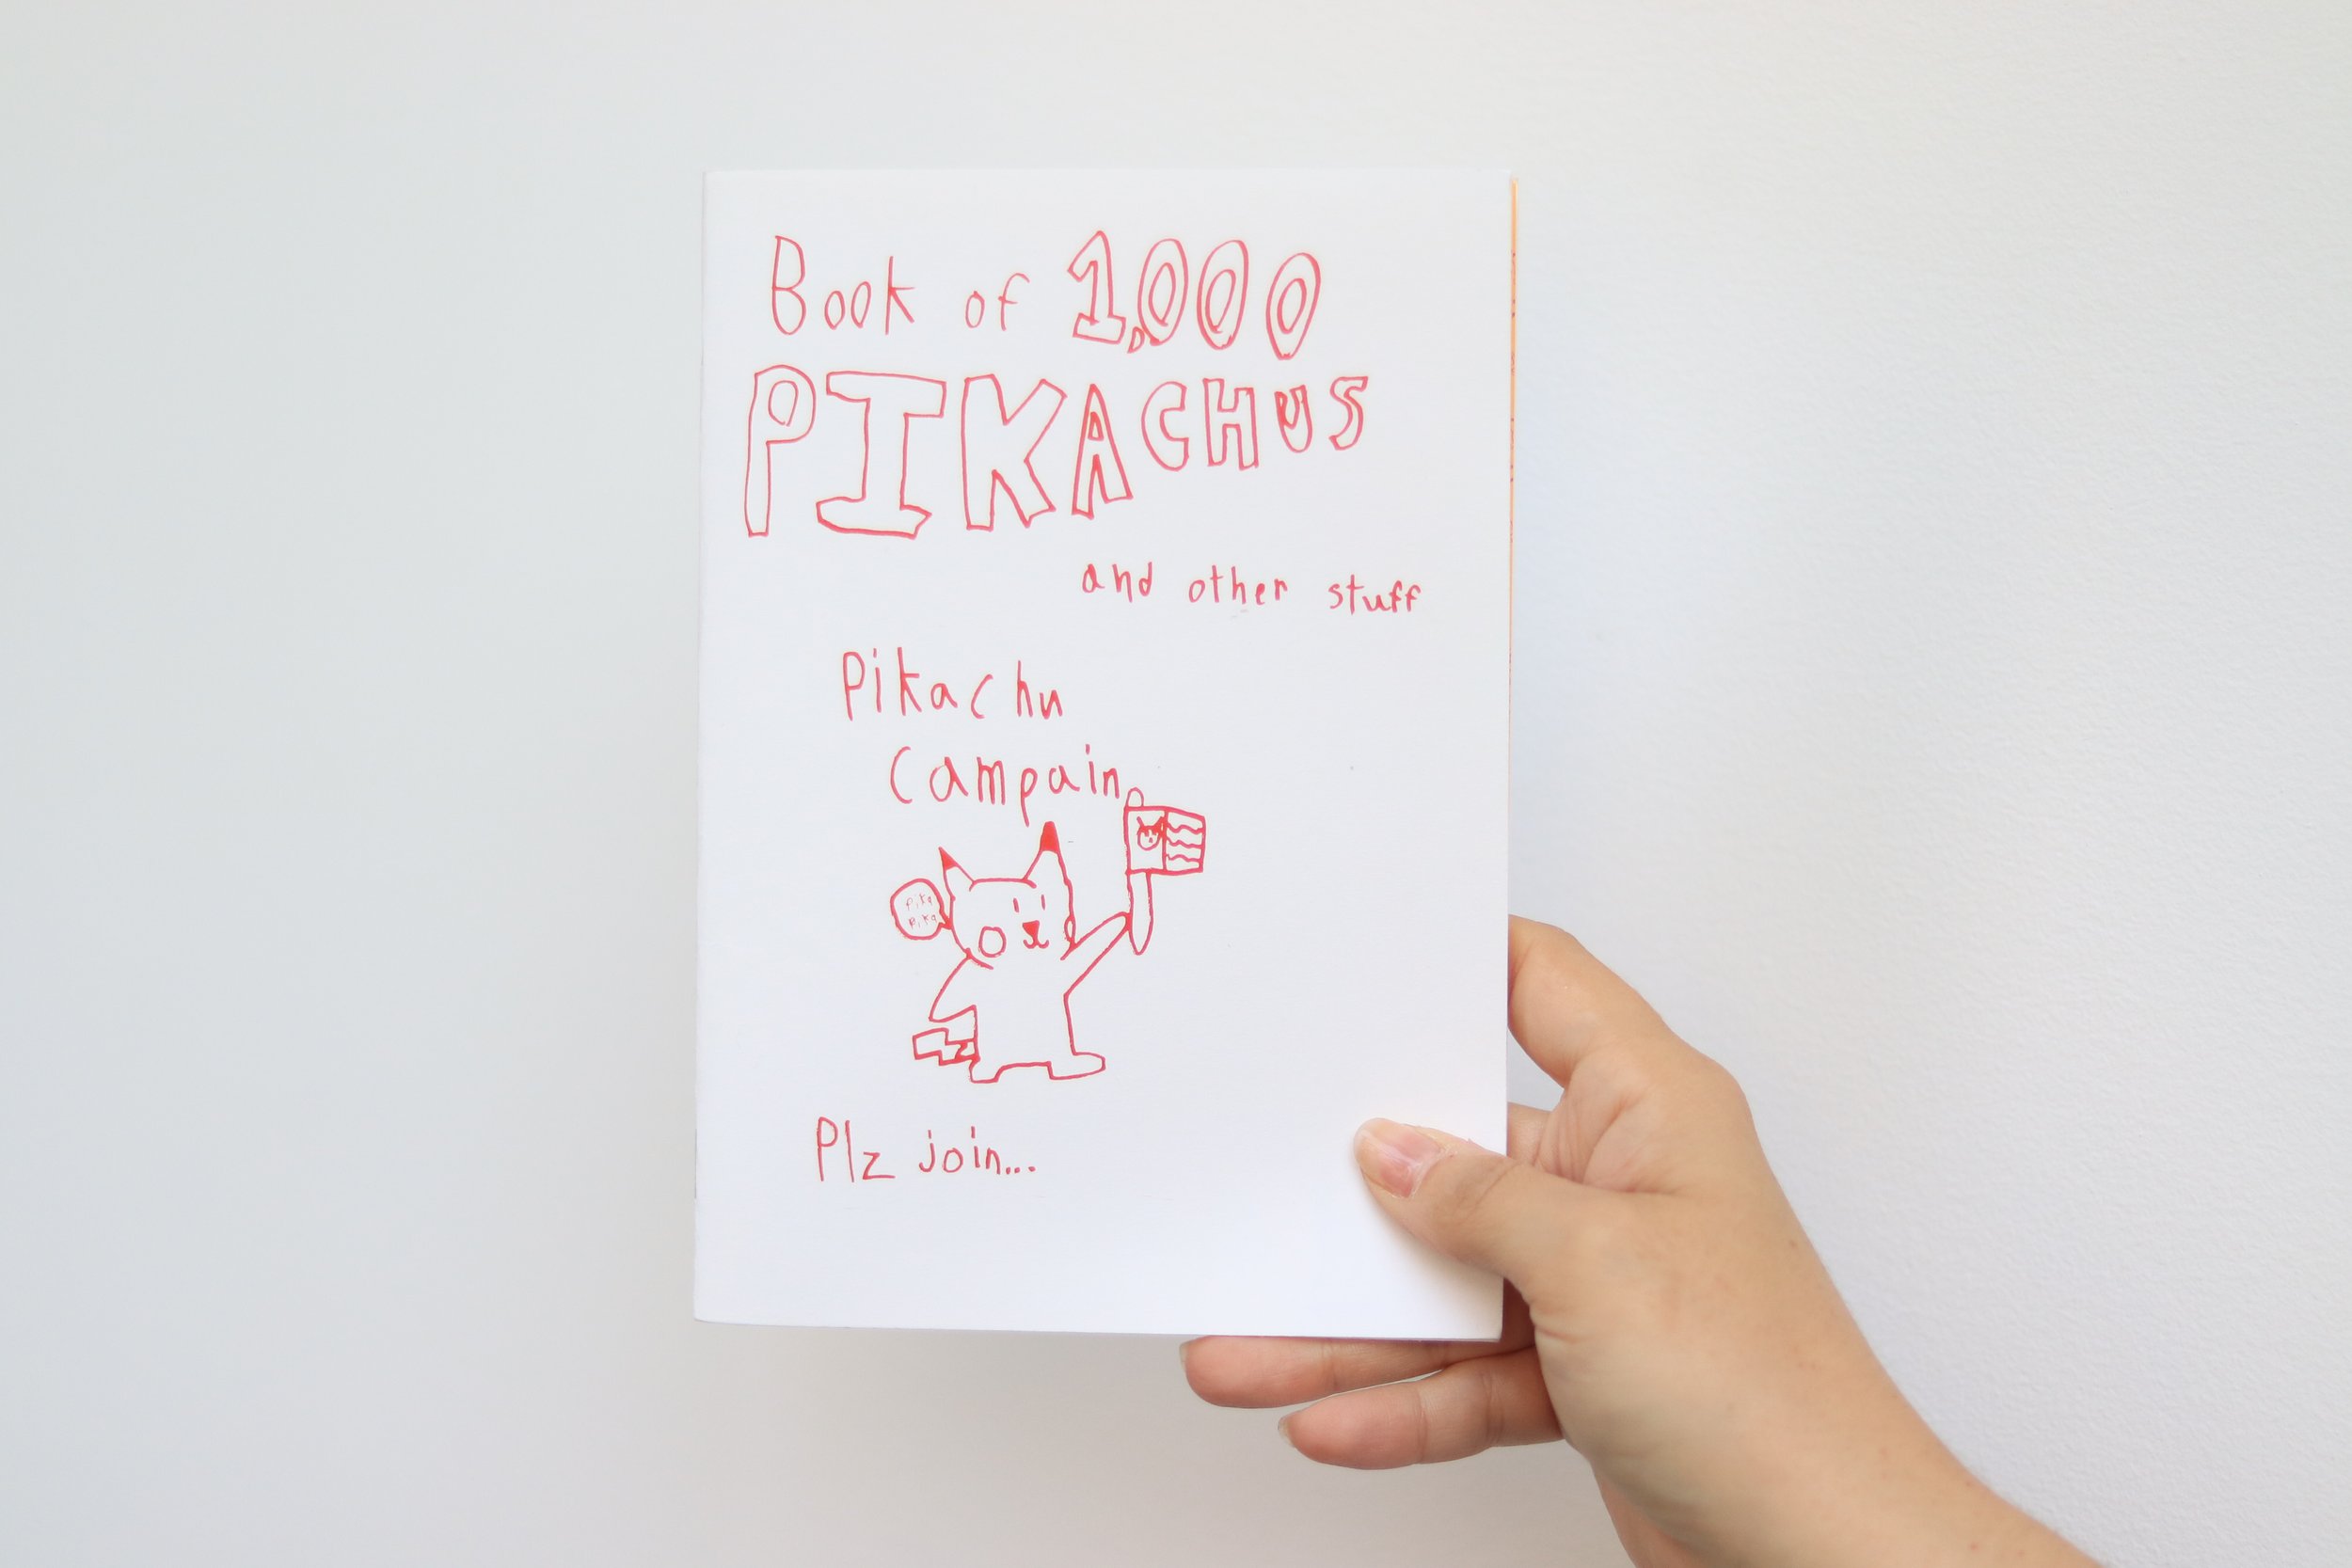 Book of 1,000
PIKACHUS
and other stuff
Pikachu
Campain
Pika
Pika
Plz join...